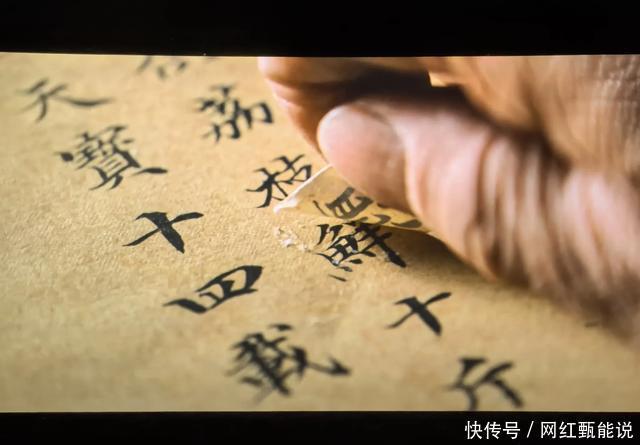 荔枝鮮十斤
天寶十四載
快传号 / 网红甄能说